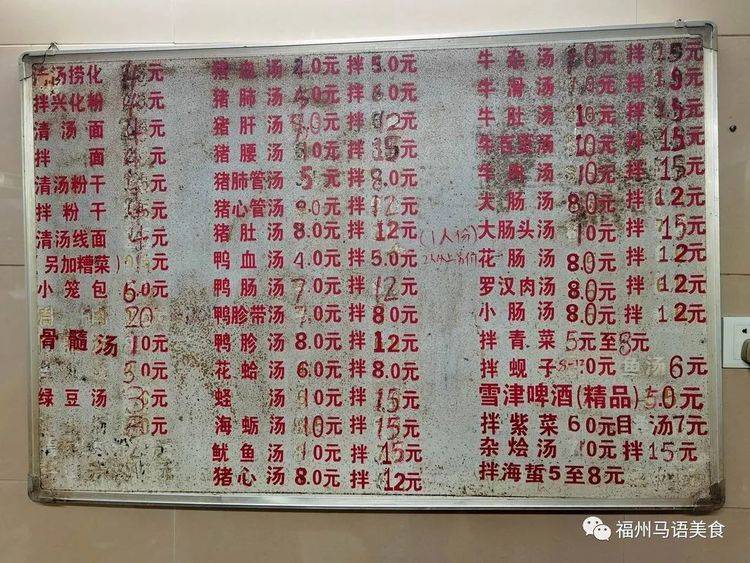 汤捞化 元
拌兴化粉 元
清汤面 元
拌 面 元
清汤粉干 元
拌粉干 元
清汤线面 4元
另加糟菜) 元
小笼包 6.0元
20元
骨髓汤 10元
3.0元
绿豆汤 3元
0元
猪血汤 4.0元 拌 5.0元
猪肺汤 .0元 拌 6.0元
猪肝汤 .0元 拌 12元
猪腰汤 元 拌 15元
猪肺管汤 5元 拌 8.0元
猪心管汤 8.0元 拌 12元
猪肚汤 8.0元 拌 12元(1人份)
鸭血汤 4.0元 拌 5.0元 2人以上另价
鸭肠汤 7元 拌 12元
鸭胗带汤 .0元 拌 8.0元
鸭胗汤 8.0元 拌 12元
花蛤汤 6.0元 拌 8.0元
蛏 汤 10元 拌 15元
海蛎汤 10元 拌 15元
鱿鱼汤 10元 拌 15元
猪心汤 8.0元 拌 12元
牛杂汤 10元 拌 15元
牛滑汤 元 拌 元
牛肚汤 10元 拌 15元
牛百葉汤 10元 拌 15元
牛 汤 10元 拌 15元
大肠汤 8.0元 拌 12元
大肠头汤 10元 拌 15元
花肠汤 8.0元 拌 12元
罗汉肉汤 8.0元 拌 12元
小肠汤 8.0元 拌 12元
拌青菜 5元至8元
拌蚬子 元 鱼汤 6元
雪津啤酒(精品) 5.0元
拌紫菜 6.0元 目 汤7元
杂烩汤 10元 拌 15元
拌海蜇5至8元
福州马语美食